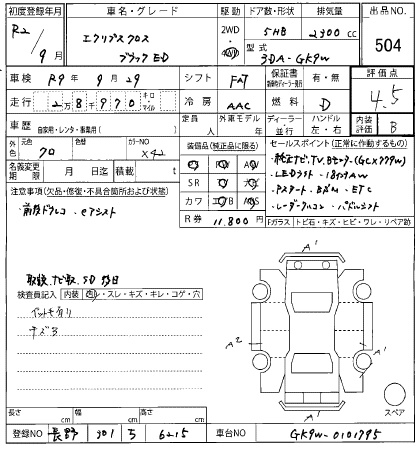 初度登録年月 車名・グレード 駆動 ドア数・形状 排気量 出品NO.
R2/9月 エクリプスクロス ブラックED 2WD 4WD 5HB 2300cc 504
型式 3DA-GK9W
車検 R9年9月29 シフト FAT 保証書 有・無 評価点 4.5
走行 2万8千970 キロ・マイル 冷房 AAC 燃料 D 内装評価 B
車歴 自家用・レンタ・事業用( ) 定員 人 外車モデル 年 ディーラー・並行 ハンドル 左・右
外色 元色 クロ 色替 カラーNO X42
装備品(純正品に限る)
セールスポイント(正常に作動するもの)
名義変更期限 月 日迄 積載 t
SR
カワ
R券 11,800円
・LEDライト ・18インチAW
・ETC
・レーダークルコン ・パドルシフト
注意事項(欠品・修復・不具合箇所および状態)
・前後ドラレコ ・eアシスト
Fガラス トビ石・キズ・ヒビ・ワレ・リペア跡
取説、ナビ取、SD後日
検査員記入 内装 ・スレ・キズ・キレ・コゲ・穴
A'
A2
A'
A'
スペア
長さ cm 幅 cm 高さ cm
登録NO 長野 301 ち 6215 車台NO GK9W-0101795